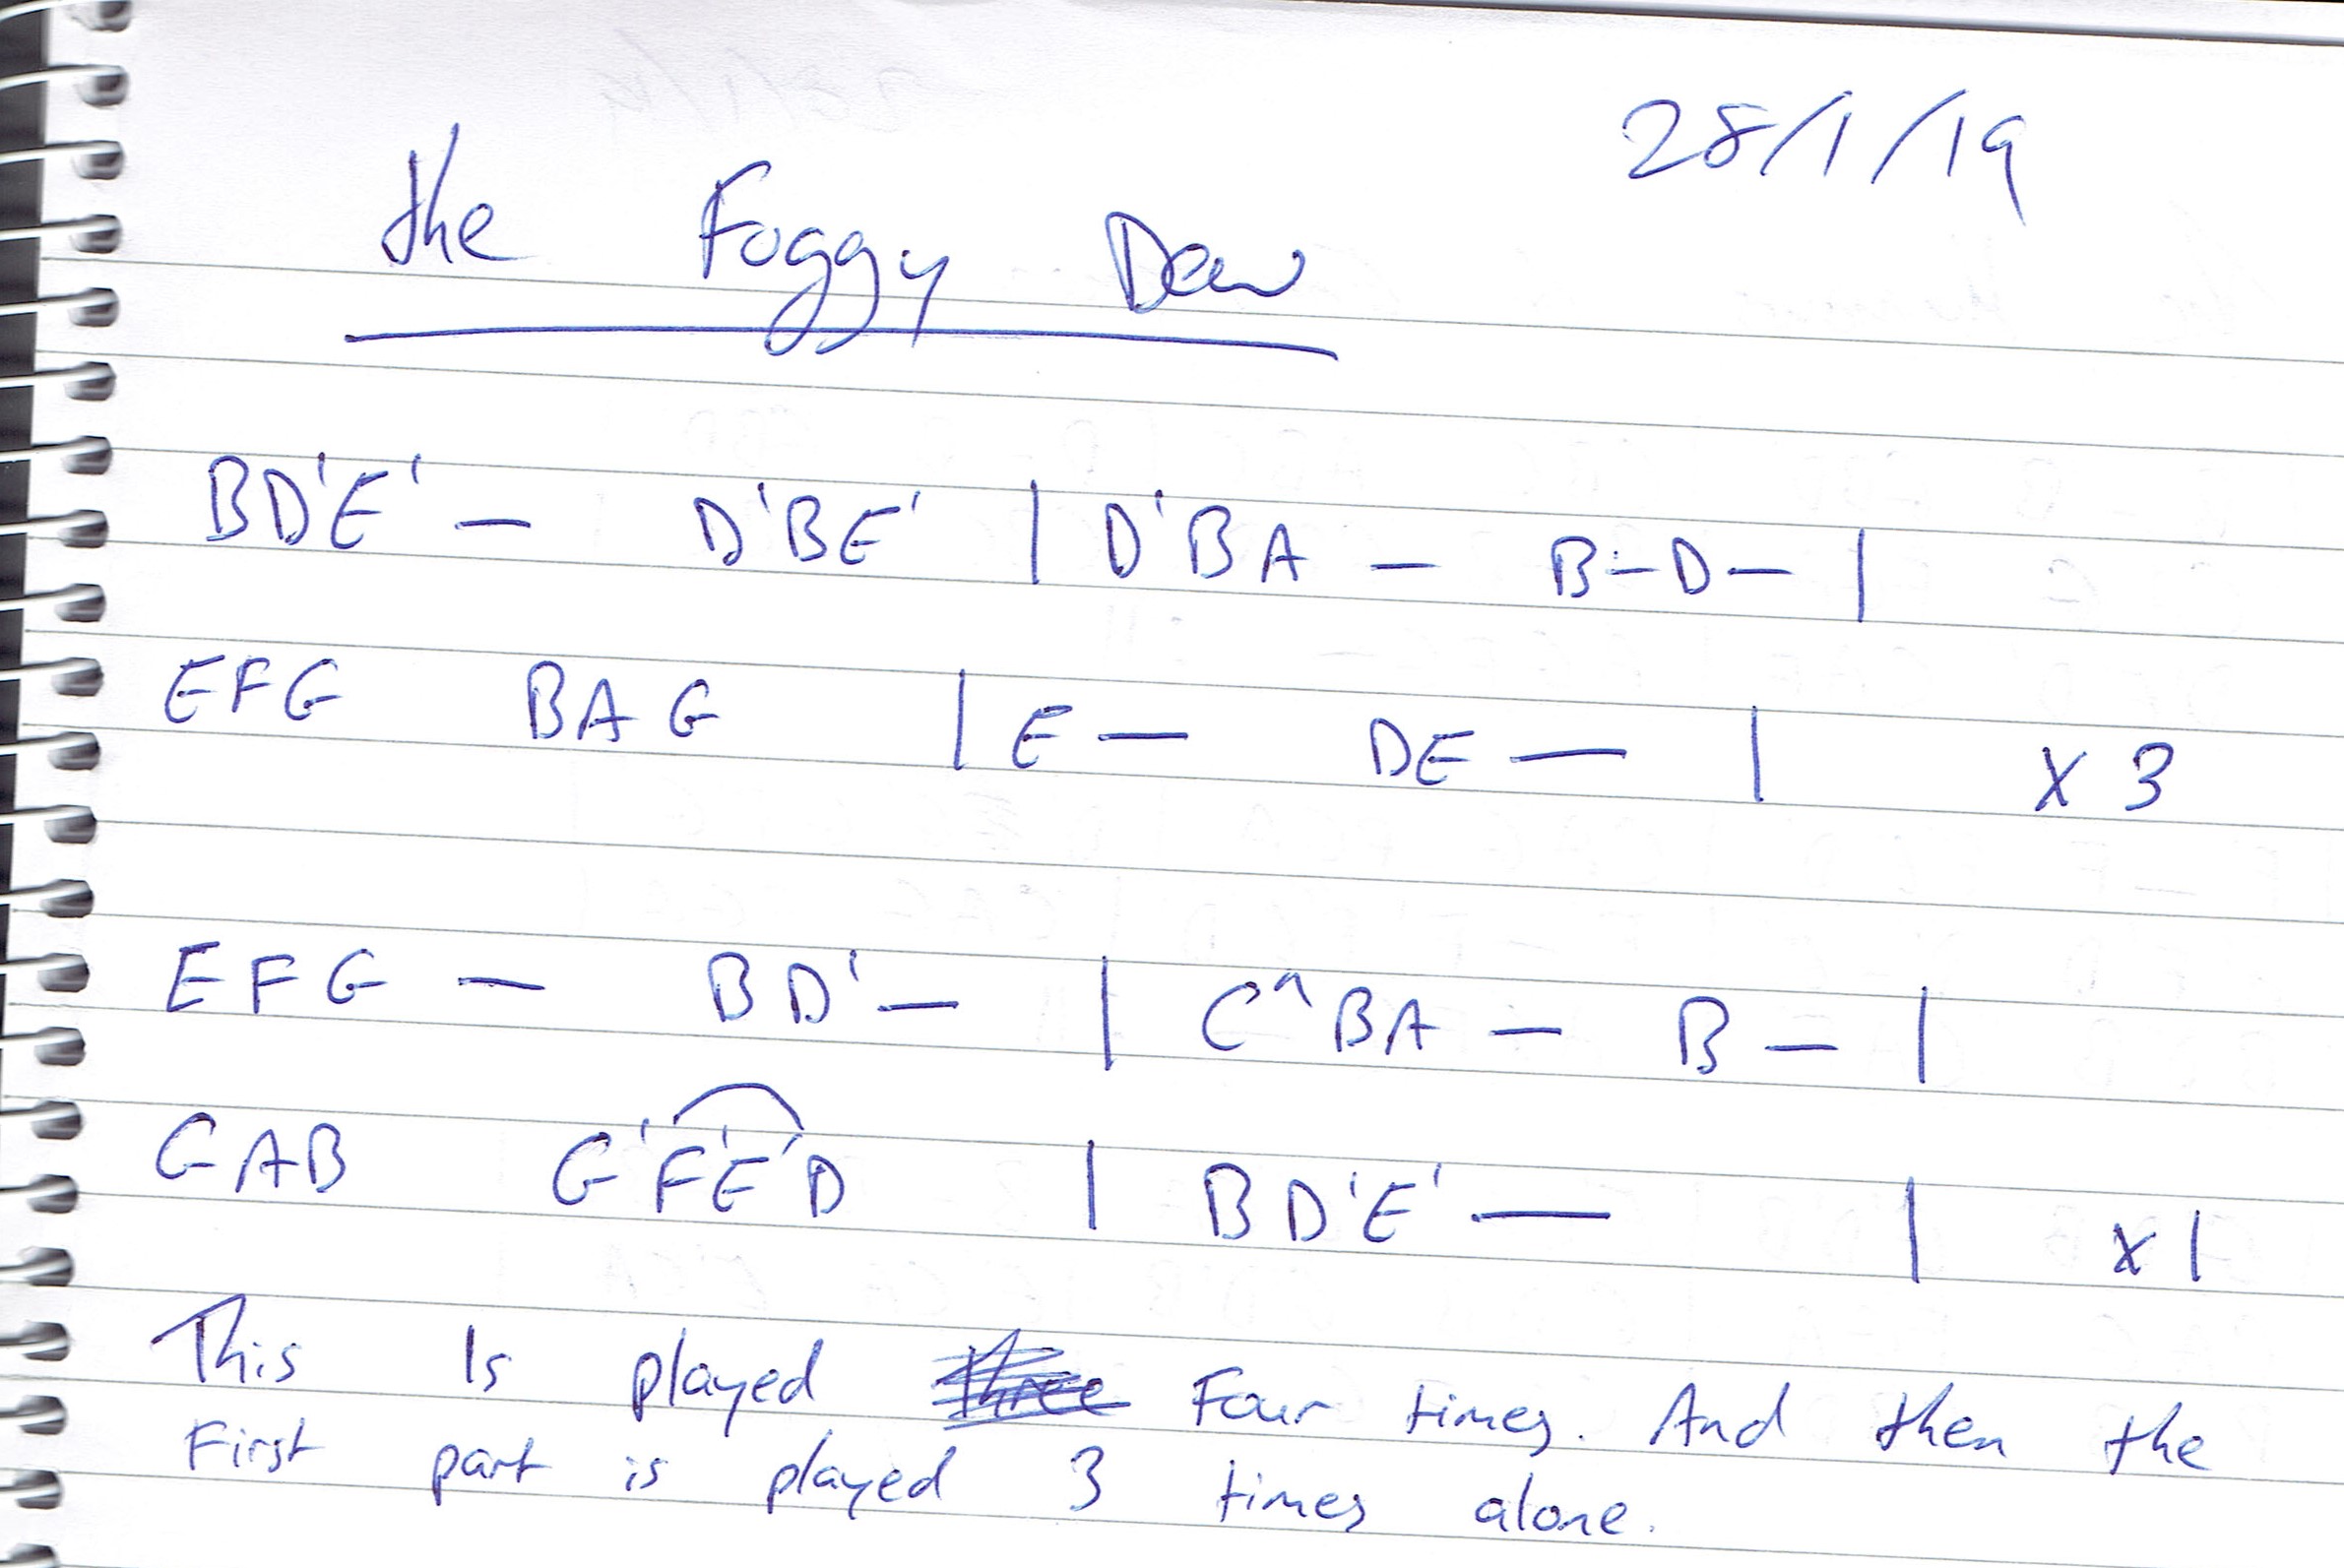 28/1/19
the Foggy Dew
BD'E' – D'BE' | D'BA – B–D– |
EFG BAG | E – DE – | x 3
EFG – BD'– | C^BA – B – |
GAB G'F'E'D | BD'E' – | x 1
This Is played Four times. And then the
First part is played 3 times alone.